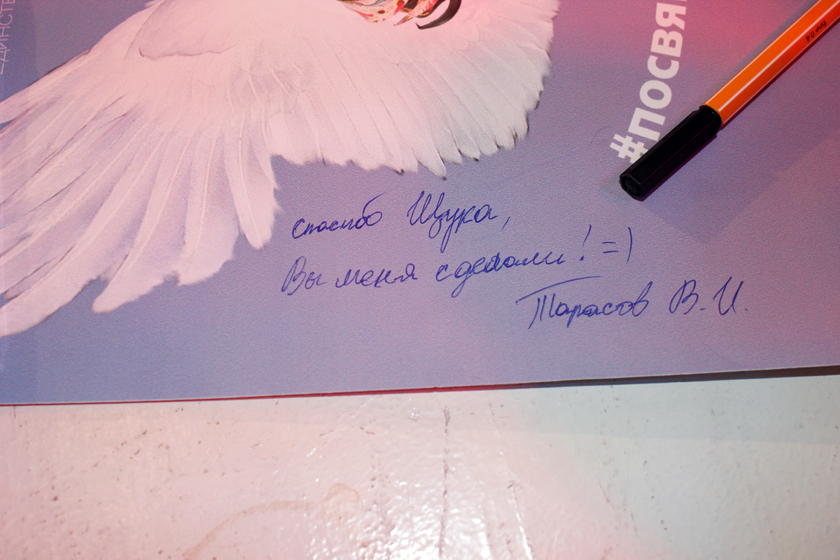 ЕДИНСТВ
#ПОСВЯ
спасибо Щука,
Вы меня сделали! =)
Тарасов В. И.